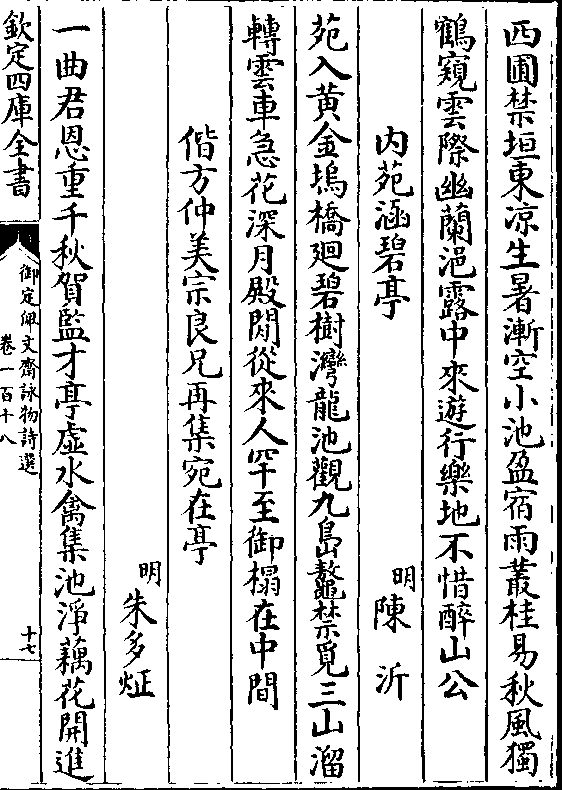 西圃禁垣東凉生暑漸空小池盈宿雨叢桂易秋風獨
鶴窺雲際幽蘭浥露中來遊行樂地不惜醉山公
内苑涵碧亭
明陳沂
苑入黄金塢橋廻碧樹灣龍池觀九島鼇禁覓三山溜
轉雲車急花深月殿閒從來人罕至御榻在中間
偕方仲美宗良兄再集宛在亭
明朱多炡
一曲君恩重千秋賀監才亭虛水禽集池淨藕花開進
欽定四庫全書
御定佩文齋詠物詩選
卷一百十八
十七